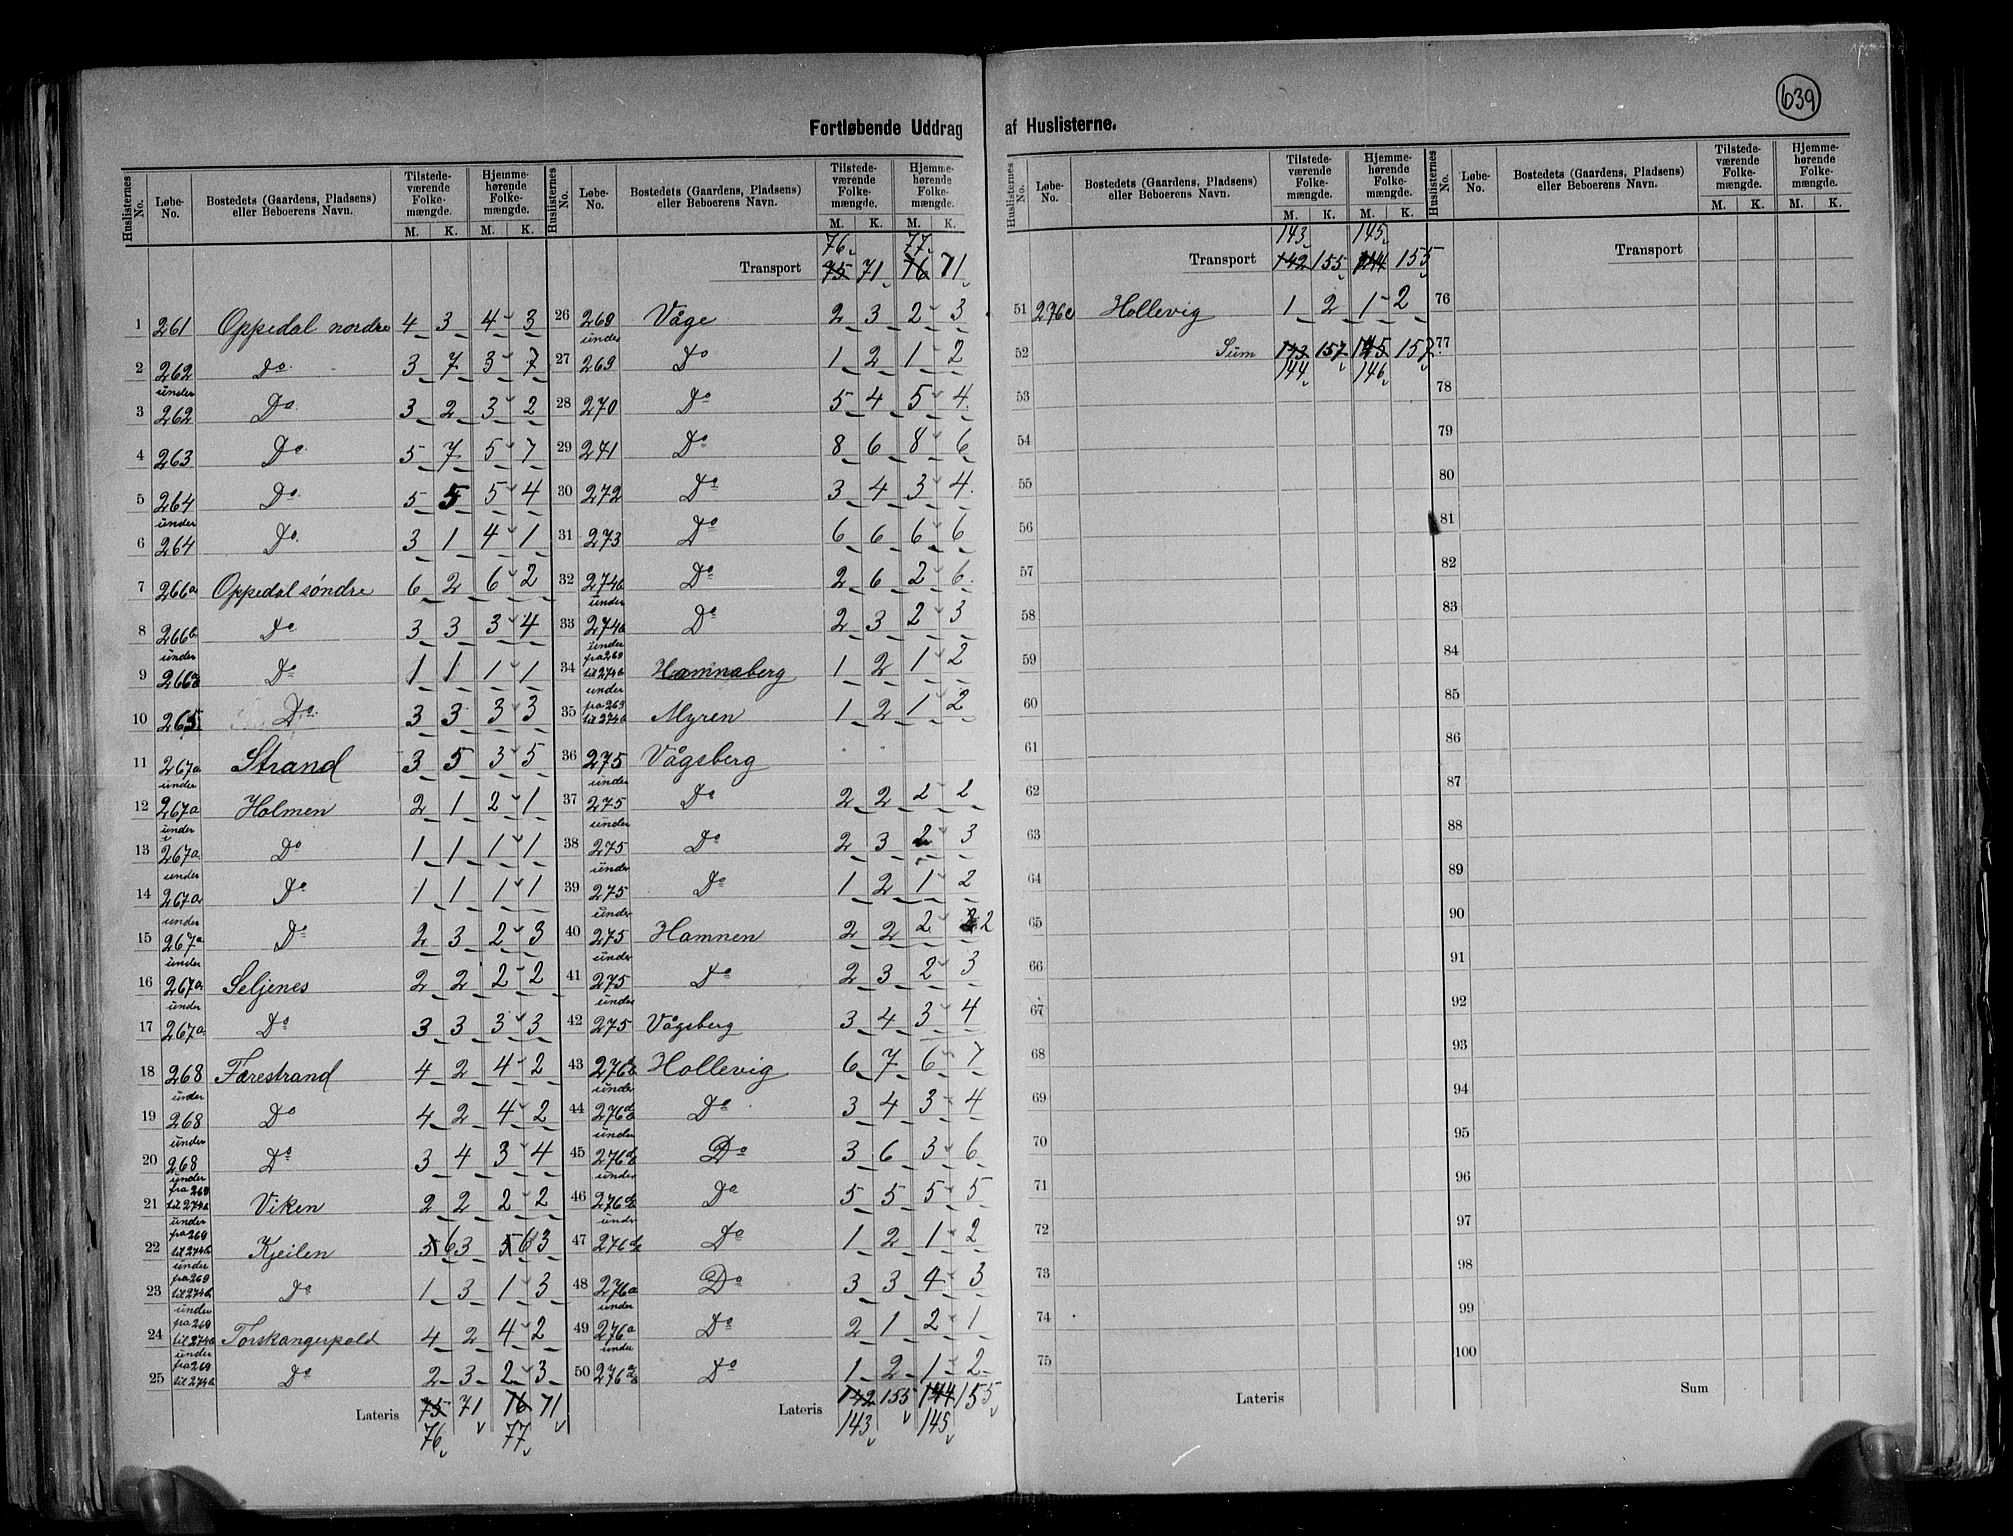 639
Fortløbende Uddrag af Huslisterne.
Huslisternes No. Løbe-No. Bostedets (Gaardens, Pladsens) eller Beboerens Navn. Tilstedeværende Folkemængde. Hjemmehørende Folkemængde.
M. K. M. K.
1 261 Oppedal nordre 4 3 4 3
2 262 Do 3 7 3 7
3 under 262 Do 3 2 3 2
4 263 Do 5 7 5 7
5 264 Do 5 5 5 4
6 under 264 Do 3 1 4 1
7 266a Oppedal söndre 6 2 6 2
8 266b Do 3 3 3 4
9 under 266a Do 1 1 1 1
10 265 Do 3 3 3 3
11 267a Strand 3 5 3 5
12 under 267a Holmen 2 1 2 1
13 under 267a Do 1 1 1 1
14 under 267a Do 1 1 1 1
15 under 267a Do 2 3 2 3
16 under 267a Seljenes 2 2 2 2
17 under 267a Do 3 3 3 3
18 268 Farestrand 4 2 4 2
19 under 268 Do 4 2 4 2
20 under 268 Do 3 4 3 4
21 under fra 269 til 274b Viken 2 2 2 2
22 under fra 269 til 274b Kjeilen 5 6 3 5 6 3
23 under fra 269 til 274b Do 1 3 1 3
24 under fra 269 til 274b Torskangerpold 4 2 4 2
25 under fra 269 til 274b Do 2 3 2 3
Lateris 75 71 76 71
76 77
Huslisternes No. Løbe-No. Bostedets (Gaardens, Pladsens) eller Beboerens Navn. Tilstedeværende Folkemængde. Hjemmehørende Folkemængde.
M. K. M. K.
76 77
Transport 75 71 76 71
26 269 Våge 2 3 2 3
27 under 269 Do 1 2 1 2
28 270 Do 5 4 5 4
29 271 Do 8 6 8 6
30 272 Do 3 4 3 4
31 273 Do 6 6 6 6
32 274b Do 2 6 2 6
33 under 274b Do 2 3 2 3
34 under fra 269 til 274b Hamnaberg 1 2 1 2
35 under fra 269 til 274b Myren 1 2 1 2
36 275 Vågsberg " "
37 under 275 Do 2 2 2 2
38 under 275 Do 2 3 2 3
39 under 275 Do 1 2 1 2
40 under 275 Hamnen 2 2 2 2
41 under 275 Do 2 3 2 3
42 under 275 Vågsberg 3 4 3 4
43 Hollevig 6 7 6 7
44 under Do 3 4 3 4
45 under Do 3 6 3 6
46 under Do 5 5 5 5
47 under Do 1 2 1 2
48 276a Do 3 3 4 3
49 under 276a Do 2 1 2 1
50 under Do 1 2 1 2
Lateris 142 155 144 155
143 145
Huslisternes No. Løbe-No. Bostedets (Gaardens, Pladsens) eller Beboerens Navn. Tilstedeværende Folkemængde. Hjemmehørende Folkemængde.
M. K. M. K.
143 145
Transport 142 155 144 155
51 276c Hollevig 1 2 1 2
52 Sum 143 157 145 157
144 146
53
54
55
56
57
58
59
60
61
62
63
64
65
66
67
68
69
70
71
72
73
74
75
Lateris
Huslisternes No. Løbe-No. Bostedets (Gaardens, Pladsens) eller Beboerens Navn. Tilstedeværende Folkemængde. Hjemmehørende Folkemængde.
M. K. M. K.
Transport
76
77
78
79
80
81
82
83
84
85
86
87
88
89
90
91
92
93
94
95
96
97
98
99
100
Sum